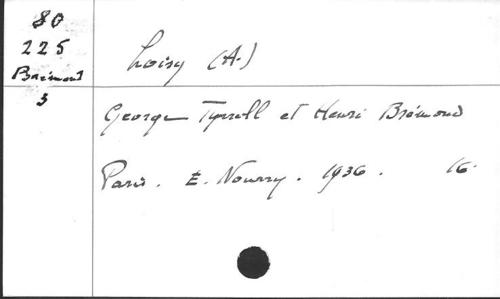 80
225
Brémond
3
Loisy (A.)
George Tyrrell et Henri Brémond
Paris. E. Nourry. 1936. 16